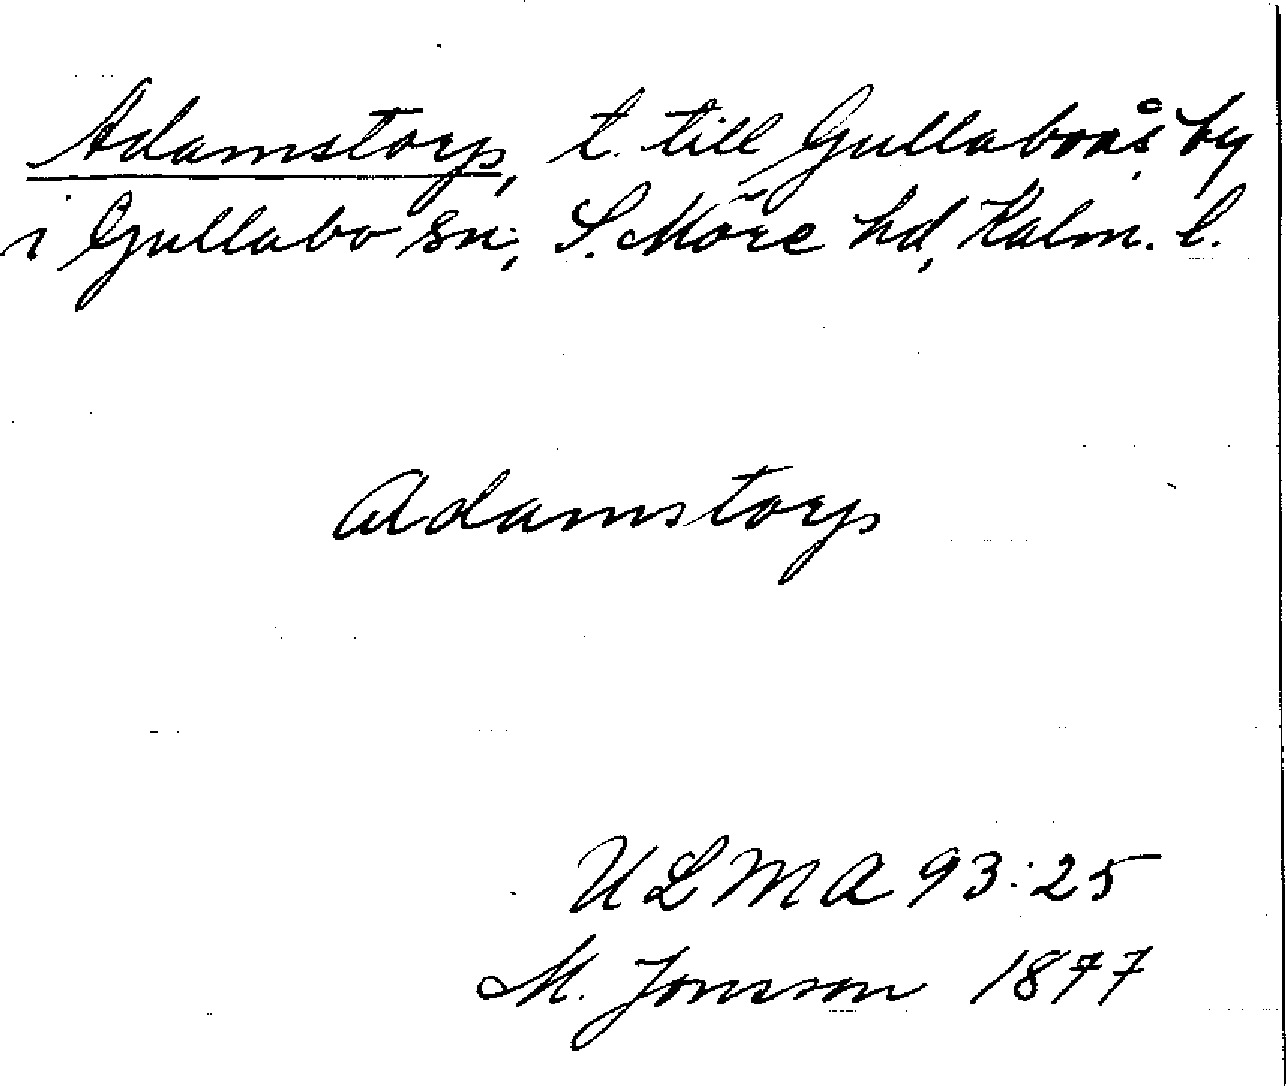 Adamstorp, t. till Gullaboås by
i Gullabo sn, S. Möre hd, Kalm. l.
Adamstorp
ULMA 93:25
M. Jonsson 1877